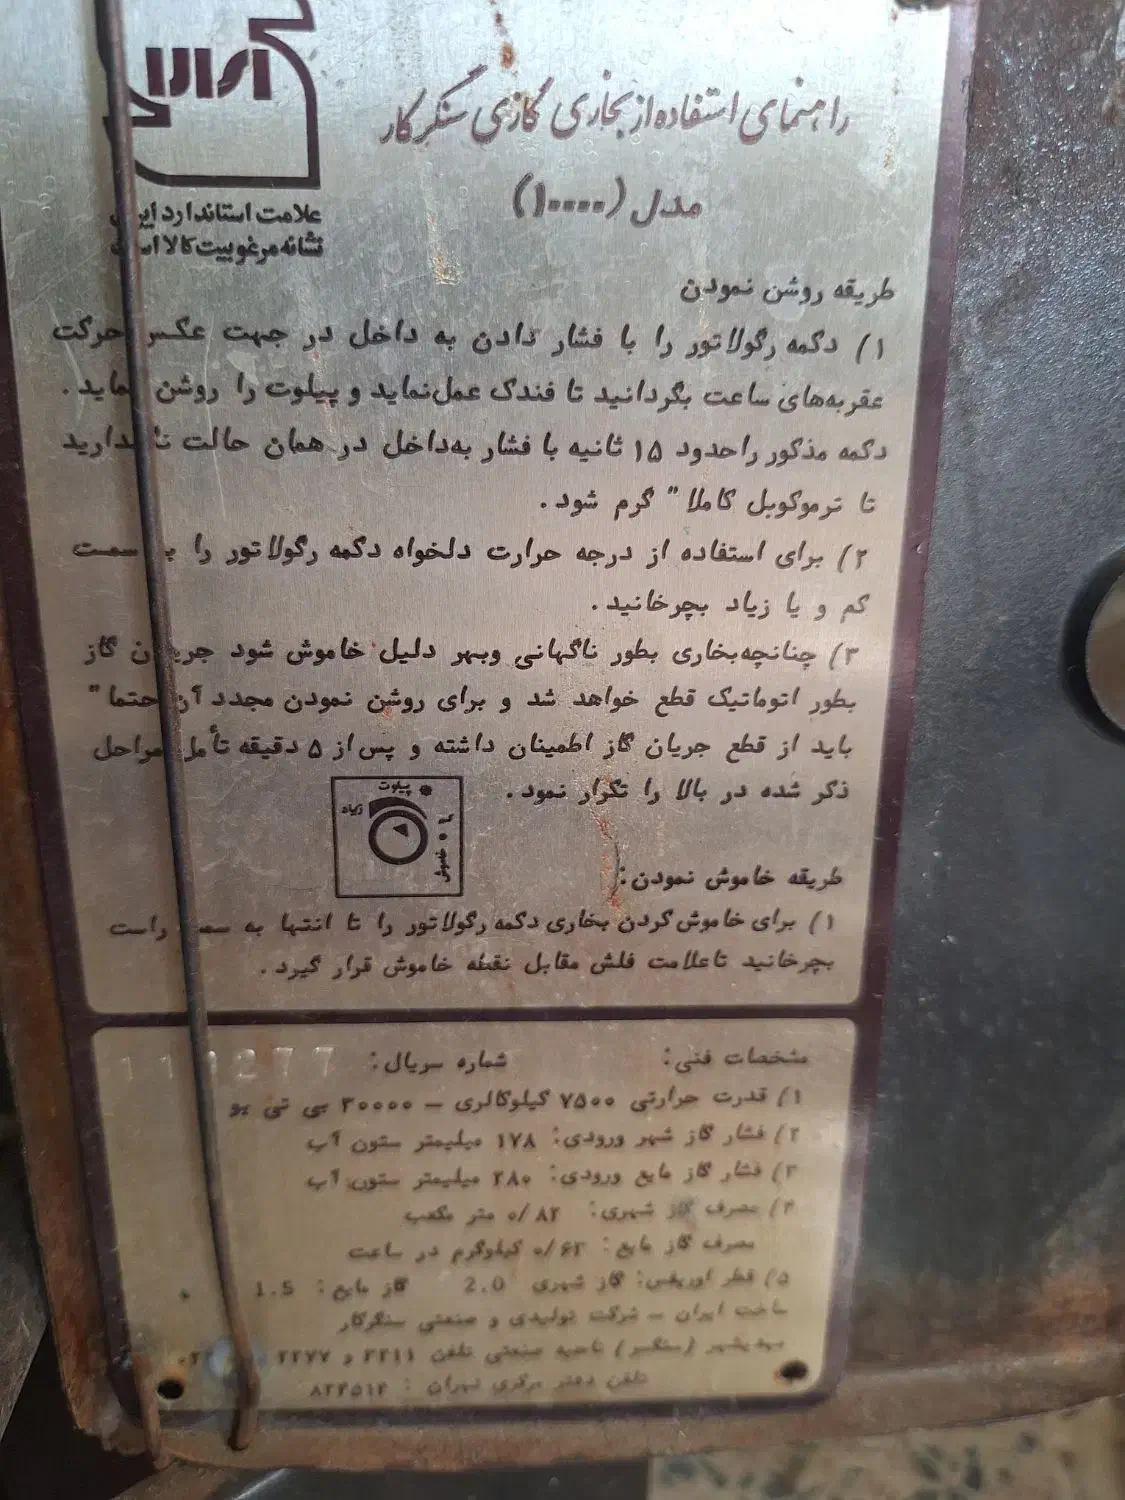 راهنمای استفاده از بخاری گازی سنگرکار
مدل (۱۰۰۰۰)
علامت استاندارد ایران
نشانه مرغوبیت کالا است
طریقه روشن نمودن
۱) دکمه رگولاتور را با فشار دادن به داخل در جهت عکس حرکت
عقربه‌های ساعت بگردانید تا فندک عمل‌نماید و پیلوت را روشن نماید.
دکمه مذکور را حدود ۱۵ ثانیه با فشار به‌داخل در همان حالت نگهدارید
تا ترموکوبل کاملا" گرم شود.
۲) برای استفاده از درجه حرارت دلخواه دکمه رگولاتور را به سمت
کم و یا زیاد بچرخانید.
۳) چنانچه‌بخاری بطور ناگهانی وبهر دلیل خاموش شود جریان گاز
بطور اتوماتیک قطع خواهد شد و برای روشن نمودن مجدد آن حتما"
باید از قطع جریان گاز اطمینان داشته و پس از ۵ دقیقه تأمل مراحل
ذکر شده در بالا را تکرار نمود.
پیلوت
زیاد
خاموش
طریقه خاموش نمودن:
۱) برای خاموش کردن بخاری دکمه رگولاتور را تا انتها به سمت راست
بچرخانید تاعلامت فلش مقابل نقطه خاموش قرار گیرد.
مشخصات فنی: شماره سریال:
۱) قدرت حرارتی ۷۵۰۰ کیلوکالری – ۳۰۰۰۰ بی تی یو
۲) فشار گاز شهر ورودی: ۱۷۸ میلیمتر ستون آب
۳) فشار گاز مایع ورودی: ۲۸۰ میلیمتر ستون آب
۴) مصرف گاز شهری: ۰/۸۲ متر مکعب
مصرف گاز مایع: ۰/۶۳ کیلوگرم در ساعت
۵) قطر اوریفس: گاز شهری 2.0 گاز مایع: 1.5
ساخت ایران – شرکت تولیدی و صنعتی سنگرکار
مهدیشهر (سنگسر) ناحیه صنعتی تلفن ۲۲۱۱ و ۲۲۷۷
تلفن دفتر مرکزی تهران: